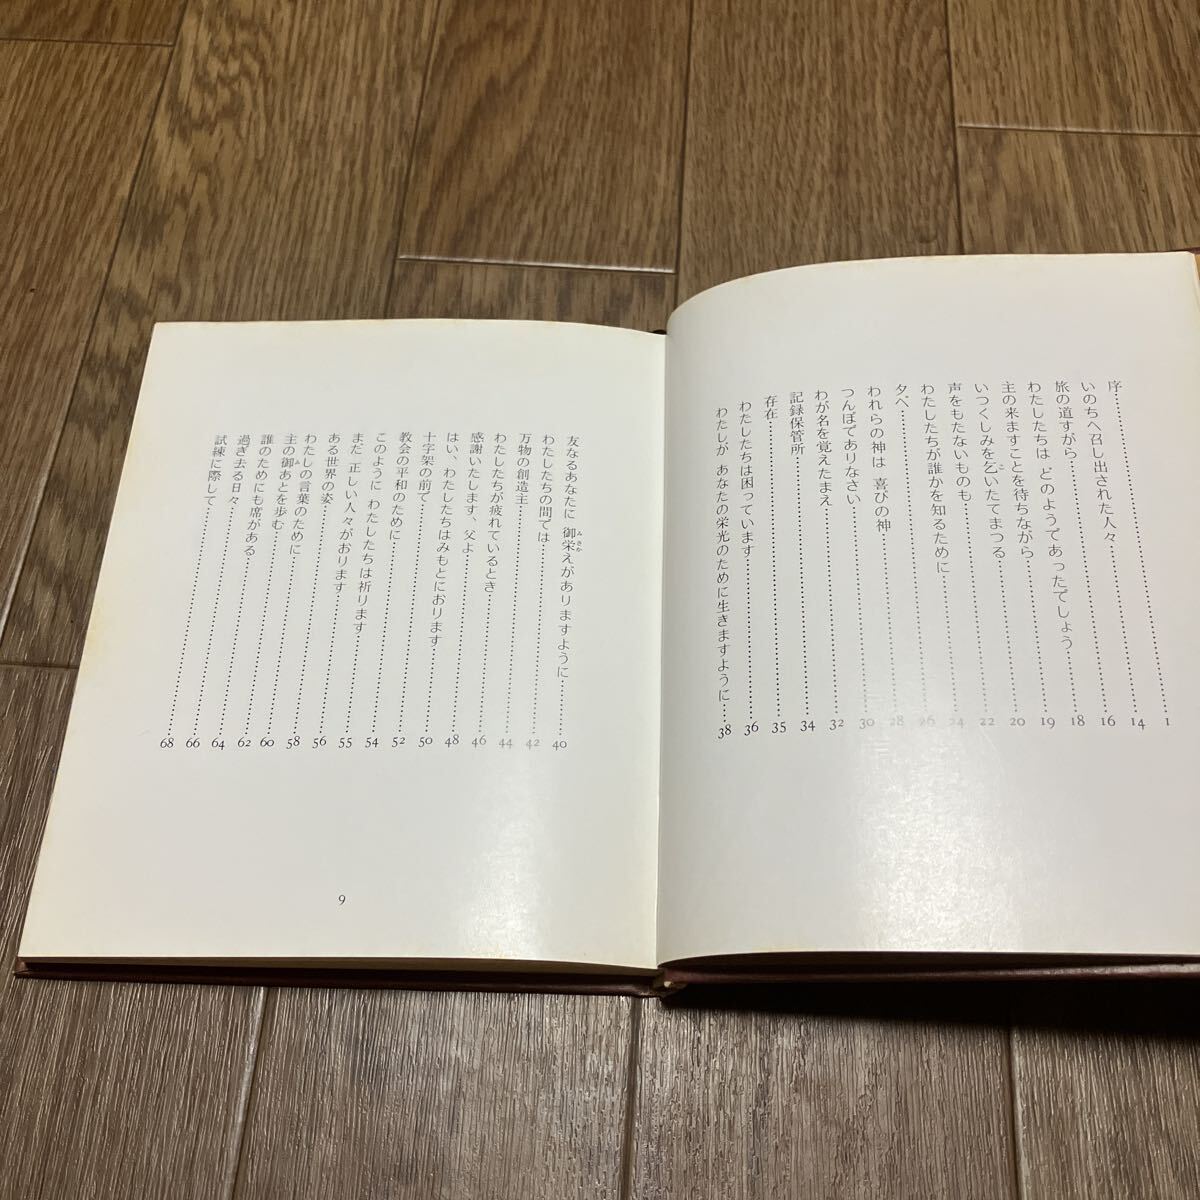 序……1
いのちへ召し出された人々……14
旅の道すがら……16
わたしたちは どのようであったでしょう……18
主の来ますことを待ちながら……19
いつくしみを乞いたてまつる……20
声をもたないものも……22
わたしたちが誰かを知るために……24
夕べ……26
われらの神は 喜びの神……28
つんぼでありなさい……30
わが名を覚えたまえ……32
記録保管所……34
存在……35
わたしたちは困っています……36
わたしが あなたの栄光のために生きますように……38
友なるあなたに 御栄えがありますように……40
わたしたちの間では……42
万物の創造主……44
わたしたちが疲れているとき……46
感謝いたします、父よ……48
はい、わたしたちはみもとにおります……50
十字架の前で……52
教会の平和のために……54
このように わたしたちは祈ります……55
まだ 正しい人々がおります……56
ある世界の姿……58
わたしの言葉のために……60
主の御あとを歩む……62
誰のためにも席がある……64
過ぎ去る日々……66
試練に際して……68
9